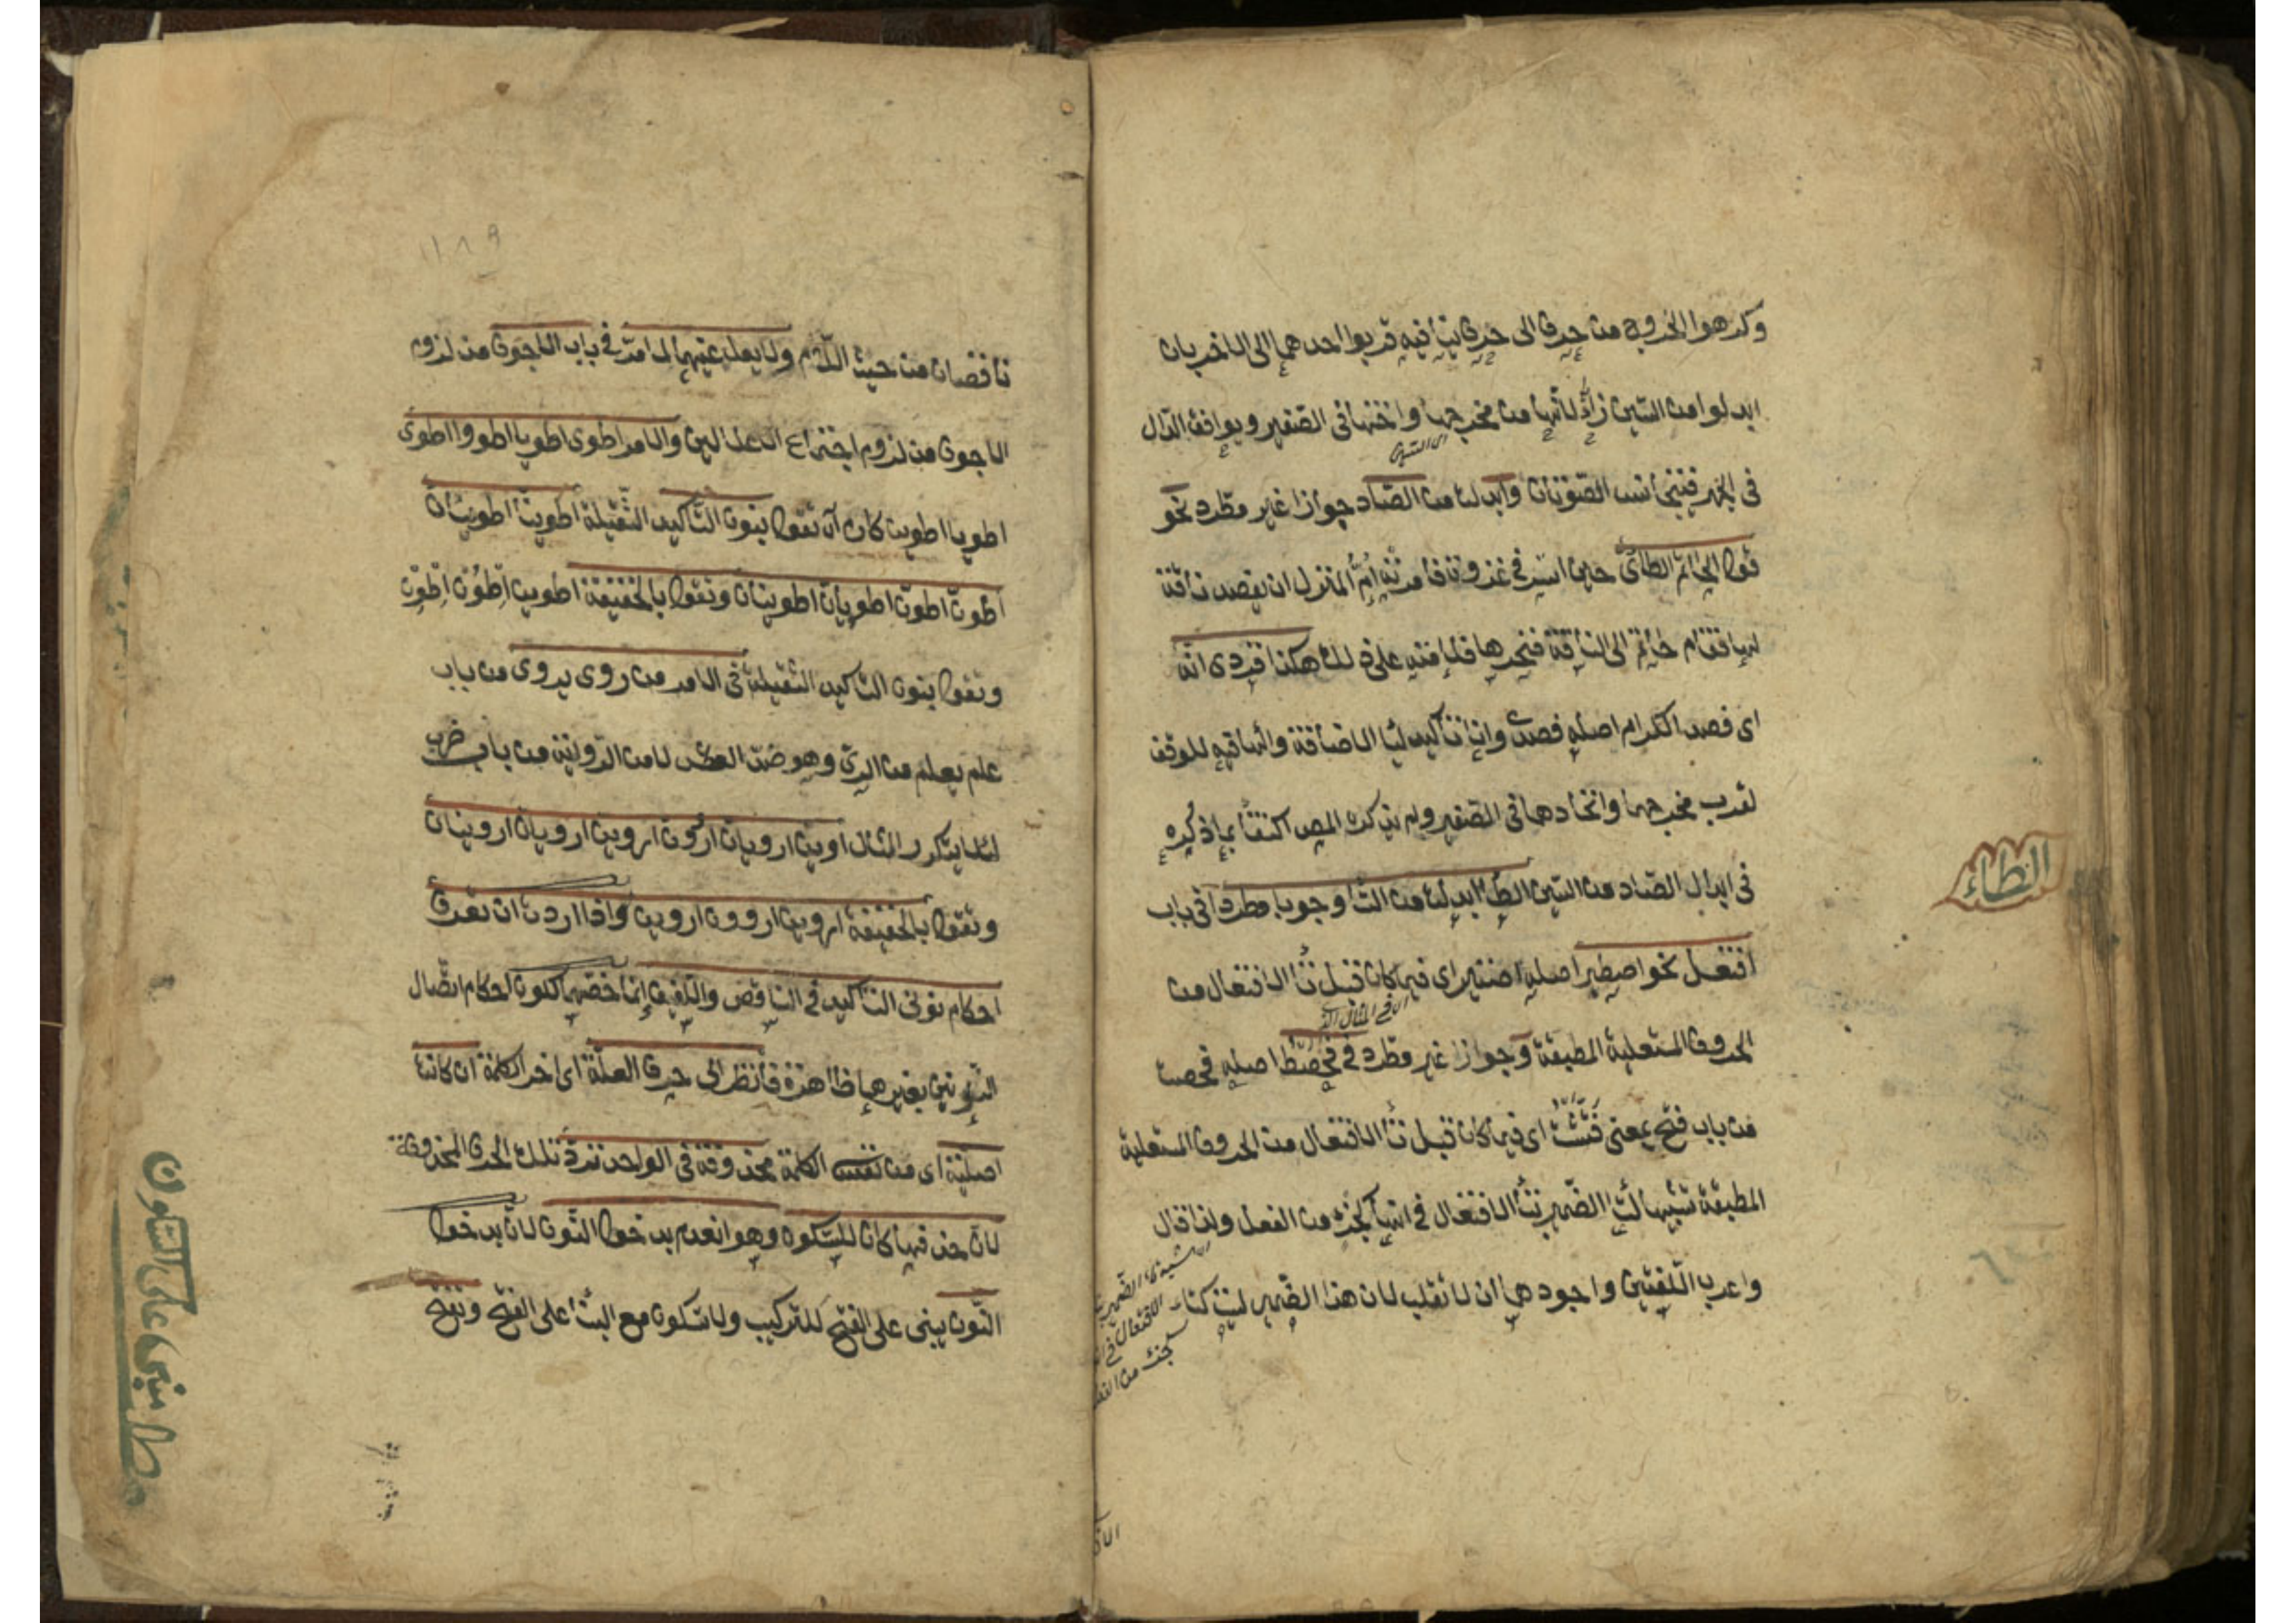 وكرهوا الخروج من حرف الى حرف ينافيه قربوا احدهما الى الاخر بان
ابدلوا من السين زاءً لانها من مخرجها واختها فى الصفير ويوافق الدال
اى السين
فى الجهر فيتجانس الصوتان وابدلت من الصاد جوازا غير مطرد نحو
قول الحاتم الطائى حين اسر فى غزوة فامرته ام المنزل ان يفصد ناقة
لها فقام حاتم الى الناقة فنحرها فلامته على ذلك هكذا فزدى انه
اى فصد الكرام اصله فصدى وانا تأكيد ليا الاضافة والهاء فيه للوقف
لقرب مخرجهما واتحادهما فى الصفير ولم يذكره المص اكتفأ بما ذكره
فى ابدال الصاد من السين الطاء ابدلت من التاء وجوبا مطردا فى باب
الطاء
افتعل نحو اصطبر اصله اصتبر اى فيما كان قبل تاء الافتعال من
الحروف المستعلية المطبقة وجوازا غير مطرد فى فحصط اصله فحصت
من باب فتح بمعنى فتّشت اى فيما كان قبل تاء الافتعال من الحروف المستعلية
المطبقة تشبيها لتاء الضمير بتاء الافتعال فى انها كجزء من الفعل وانما قال
واعرب اللغتين واجودهما ان لا تقلب لان هذا الضمير ليست كتاء
الافتعال فى
كجزء من الفعل
١١٨٩
ناقصان من حيث اللام ولا يعل عينهما لما مرّ فى باب الاجوف من لزوم
الاجوف من لزوم اجتماع الاعلالين والامر اطو اطويا اطووا اطوى
اطويا اطوين كان ان تقول بنون التأكيد الثقيلة اطوينّ اطويانّ
اطونّ اطونّ اطويانّ اطوينانّ وتقول بالخفيفة اطوين اطوُن اطوِن
وتقول بنون التأكيد الثقيلة فى الامر من روى يروى من باب
علم يعلم من الرىّ وهو ضد العطش لا من الرواية من باب ضرب
لئلا يتكرر المثال اروينّ ارويانّ اروونّ اروينّ ارويانّ اروينانّ
وتقول بالخفيفة اروين اروون اروين واذا اردت ان تعرف
احكام نونى التأكيد فى الناقص واللفيف انما خصهما لكون احكام اتصال
النونين بغيرهما ظاهرة فانظر الى حرف العلة اى اخر الكلمة ان كانت
اصلية اى من نفس الكلمة محذوفة فى الواحد تردّ تلك الحرف المحذوفة
لان حذفها كان للسكون وهو انعدم بدخول النون لان بدخول
النون يبنى على الفتح للتركيب ولا سكون مع البناء على الفتح وتفتح